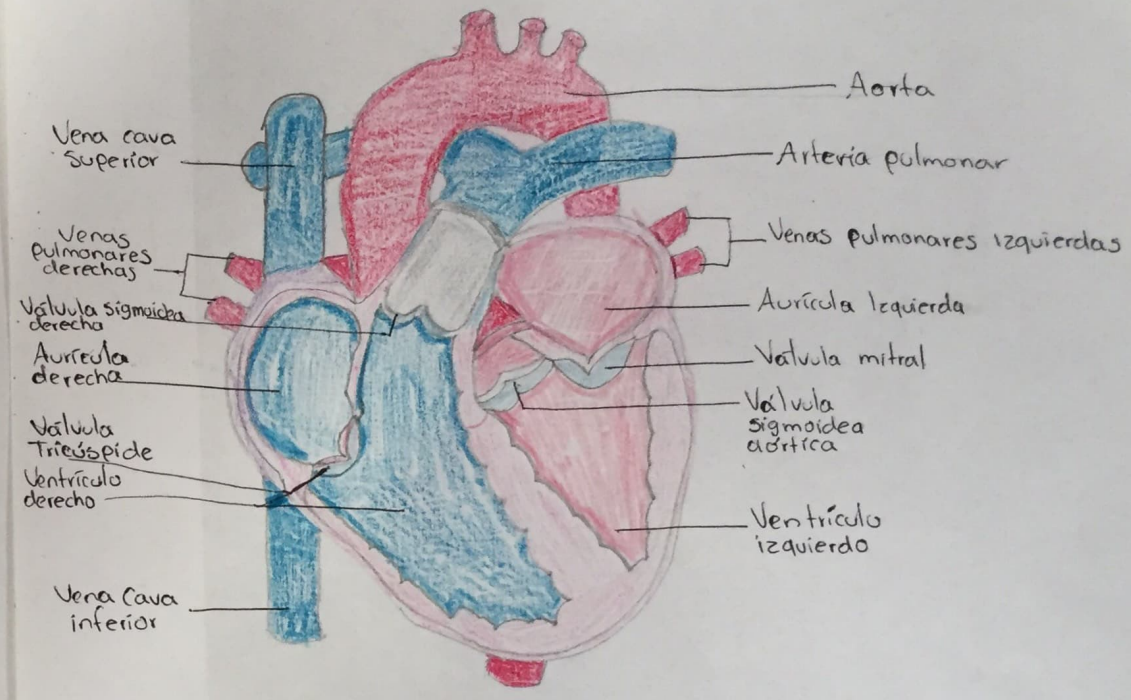 Vena cava
Superior
Venas
pulmonares
derechas
Válvula Sigmoidea
derecha
Aurícula
derecha
Válvula
Tricúspide
Ventrículo
derecho
Vena Cava
inferior
Aorta
Arteria pulmonar
Venas pulmonares Izquierdas
Aurícula Izquierda
Válvula mitral
Válvula
sigmoidea
aórtica
Ventrículo
izquierdo